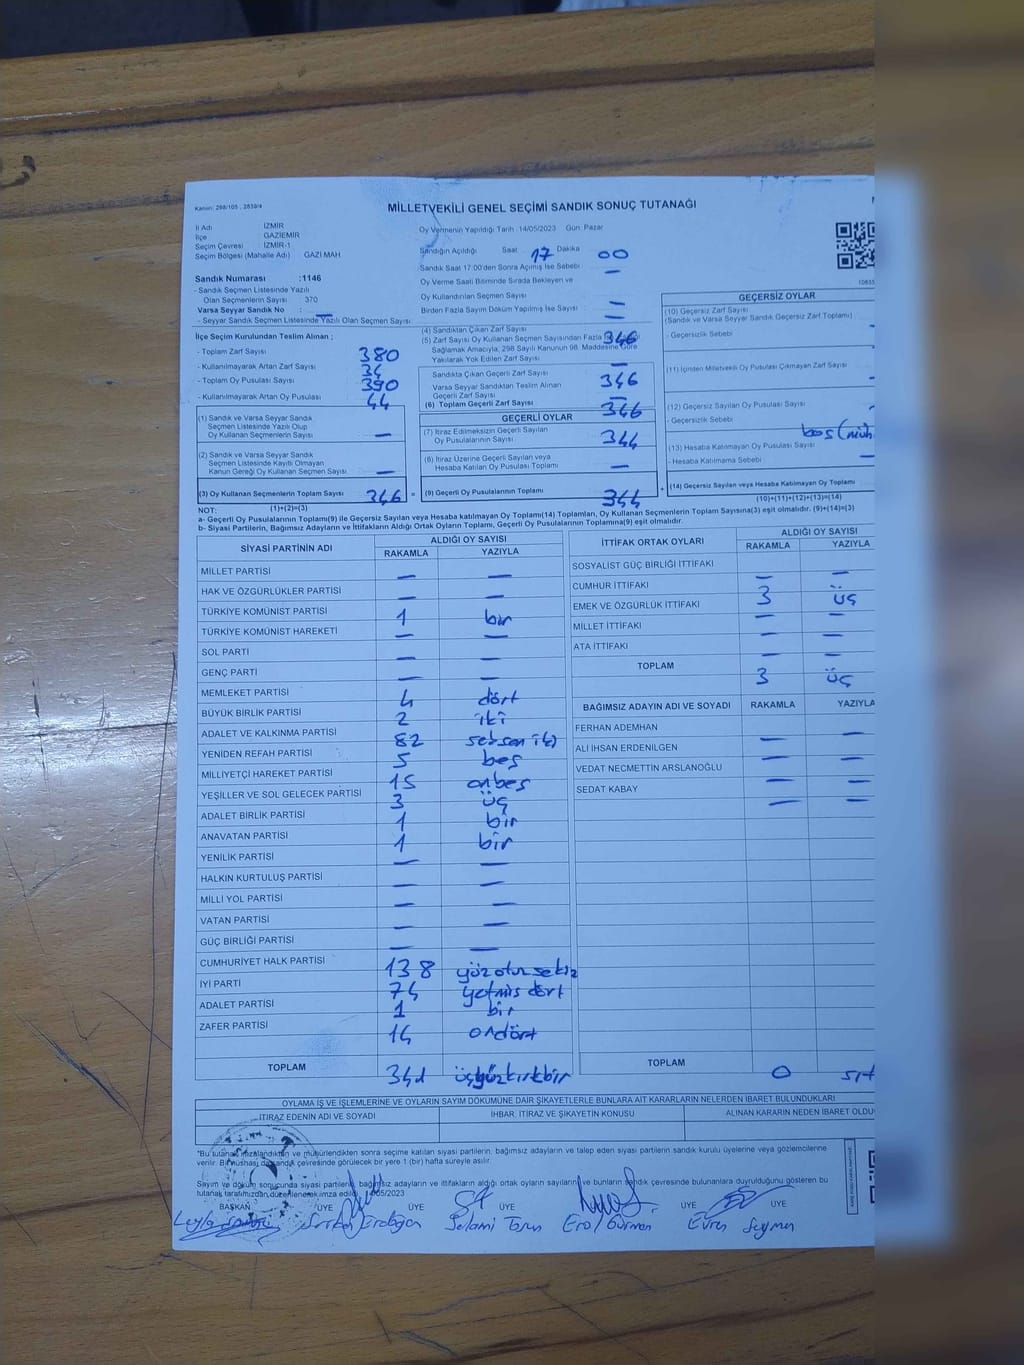 Kanun: 298/105 ; 2839/4
MİLLETVEKİLİ GENEL SEÇİMİ SANDIK SONUÇ TUTANAĞI
İl Adı İZMİR
İlçe GAZİEMİR
Seçim Çevresi : İZMİR-1
Seçim Bölgesi (Mahalle Adı) GAZİ MAH
Oy Vermenin Yapıldığı Tarih :14/05/2023 Gün: Pazar
Sandığın Açıldığı Saat 17 Dakika 00
Sandık Saat 17:00'den Sonra Açılmış İse Sebebi —
Oy Verme Saati Bitiminde Sırada Bekleyen ve
Oy Kullandırılan Seçmen Sayısı —
Birden Fazla Sayım Döküm Yapılmış İse Sayısı —
Sandık Numarası :1146
- Sandık Seçmen Listesinde Yazılı
Olan Seçmenlerin Sayısı 370
Varsa Seyyar Sandık No :
- Seyyar Sandık Seçmen Listesinde Yazılı Olan Seçmen Sayısı —
İlçe Seçim Kurulundan Teslim Alınan ;
- Toplam Zarf Sayısı 380
- Kullanılmayarak Artan Zarf Sayısı 34
- Toplam Oy Pusulası Sayısı 390
- Kullanılmayarak Artan Oy Pusulası 44
(1) Sandık ve Varsa Seyyar Sandık
Seçmen Listesinde Yazılı Olup
Oy Kullanan Seçmenlerin Sayısı —
(2) Sandık ve Varsa Seyyar Sandık
Seçmen Listesinde Kayıtlı Olmayan
Kanun Gereği Oy Kullanan Seçmen Sayısı —
(3) Oy Kullanan Seçmenlerin Toplam Sayısı 346 =
(1)+(2)=(3)
(4) Sandıktan Çıkan Zarf Sayısı 346
(5) Zarf Sayısı Oy Kullanan Seçmen Sayısından Fazla
Sağlamak Amacıyla, 298 Sayılı Kanunun 98. Maddesine Göre
Yakılarak Yok Edilen Zarf Sayısı —
Sandıkta Çıkan Geçerli Zarf Sayısı 346
Varsa Seyyar Sandıktan Teslim Alınan
Geçerli Zarf Sayısı —
(6) Toplam Geçerli Zarf Sayısı 346
GEÇERLİ OYLAR
(7) İtiraz Edilmeksizin Geçerli Sayılan
Oy Pusulalarının Sayısı 344
(8) İtiraz Üzerine Geçerli Sayılan veya
Hesaba Katılan Oy Pusulası Toplamı —
(9) Geçerli Oy Pusulalarının Toplamı 344 +
GEÇERSİZ OYLAR
(10) Geçersiz Zarf Sayısı
(Sandık ve Varsa Seyyar Sandık Geçersiz Zarf Toplamı)
- Geçersizlik Sebebi
(11) İçinden Milletvekili Oy Pusulası Çıkmayan Zarf Sayısı
(12) Geçersiz Sayılan Oy Pusulası Sayısı
- Geçersizlik Sebebi boş
(13) Hesaba Katılmayan Oy Pusulası Sayısı
- Hesaba Katılmama Sebebi —
(14) Geçersiz Sayılan veya Hesaba Katılmayan Oy Toplamı
(10)+(11)+(12)+(13)=(14)
NOT:
a- Geçerli Oy Pusulalarının Toplamı(9) ile Geçersiz Sayılan veya Hesaba katılmayan Oy Toplamı(14) Toplamları, Oy Kullanan Seçmenlerin Toplam Sayısına(3) eşit olmalıdır. (9)+(14)=(3)
b- Siyasi Partilerin, Bağımsız Adayların ve İttifakların Aldığı Ortak Oyların Toplamı, Geçerli Oy Pusulalarının Toplamına(9) eşit olmalıdır.
SİYASİ PARTİNİN ADI ALDIĞI OY SAYISI
RAKAMLA YAZIYLA
MİLLET PARTİSİ — —
HAK VE ÖZGÜRLÜKLER PARTİSİ — —
TÜRKİYE KOMÜNİST PARTİSİ 1 bir
TÜRKİYE KOMÜNİST HAREKETİ — —
SOL PARTİ — —
GENÇ PARTİ — —
MEMLEKET PARTİSİ 4 dört
BÜYÜK BİRLİK PARTİSİ 2 iki
ADALET VE KALKINMA PARTİSİ 82 seksen iki
YENİDEN REFAH PARTİSİ 5 beş
MİLLİYETÇİ HAREKET PARTİSİ 15 onbeş
YEŞİLLER VE SOL GELECEK PARTİSİ 3 üç
ADALET BİRLİK PARTİSİ 1 bir
ANAVATAN PARTİSİ 1 bir
YENİLİK PARTİSİ — —
HALKIN KURTULUŞ PARTİSİ — —
MİLLİ YOL PARTİSİ — —
VATAN PARTİSİ — —
GÜÇ BİRLİĞİ PARTİSİ — —
CUMHURİYET HALK PARTİSİ 138 yüz otuz sekiz
İYİ PARTİ 74 yetmiş dört
ADALET PARTİSİ 1 bir
ZAFER PARTİSİ 14 ondört
TOPLAM 341 üçyüzkırkbir
İTTİFAK ORTAK OYLARI ALDIĞI OY SAYISI
RAKAMLA YAZIYLA
SOSYALİST GÜÇ BİRLİĞİ İTTİFAKI — —
CUMHUR İTTİFAKI 3 üç
EMEK VE ÖZGÜRLÜK İTTİFAKI — —
MİLLET İTTİFAKI — —
ATA İTTİFAKI — —
TOPLAM 3 üç
BAĞIMSIZ ADAYIN ADI VE SOYADI RAKAMLA YAZIYLA
FERHAN ADEMHAN — —
ALİ İHSAN ERDENİLGEN — —
VEDAT NECMETTİN ARSLANOĞLU — —
SEDAT KABAY — —
TOPLAM 0
OYLAMA İŞ VE İŞLEMLERİNE VE OYLARIN SAYIM DÖKÜMÜNE DAİR ŞİKAYETLERLE BUNLARA AİT KARARLARIN NELERDEN İBARET BULUNDUKLARI
İTİRAZ EDENİN ADI VE SOYADI İHBAR, İTİRAZ VE ŞİKAYETİN KONUSU ALINAN KARARIN NEDEN İBARET OLDU
*Bu tutanak imzalandıktan ve mühürlendikten sonra seçime katılan siyasi partilerin, bağımsız adayların ve talep eden siyasi partilerin sandık kurulu üyelerine veya gözlemcilerine
verilir. Bir nüshası da sandık çevresinde görülecek bir yere 1 (bir) hafta süreyle asılır.
Sayım ve döküm sonucunda siyasi partilerin, bağımsız adayların ve ittifakların aldığı ortak oyların sayılarının ve bunların sandık çevresinde bulunanlara duyrulduğunu gösteren bu
tutanak tarafımızdan düzenlenerek imza edildi. 14/05/2023
BAŞKAN ÜYE ÜYE ÜYE ÜYE ÜYE
Serkan Erdoğan Selami Erol Gürman Evren Seymen